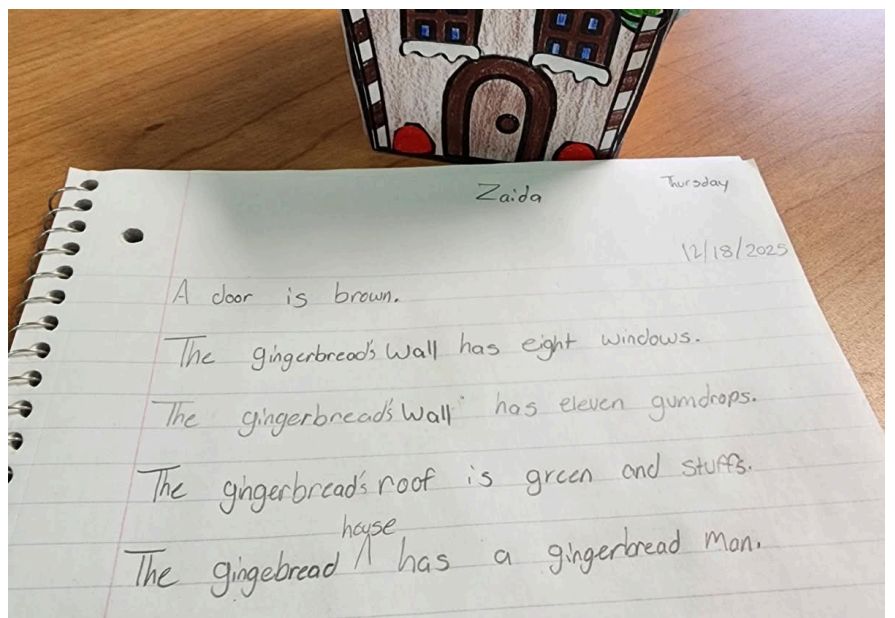 Zaida
Thursday
12/18/2025
A door is brown.
The gingerbread's wall has eight windows.
The gingerbread's wall has eleven gumdrops.
The gingerbread's roof is green and stuffs.
The gingebread house has a gingerbread man.